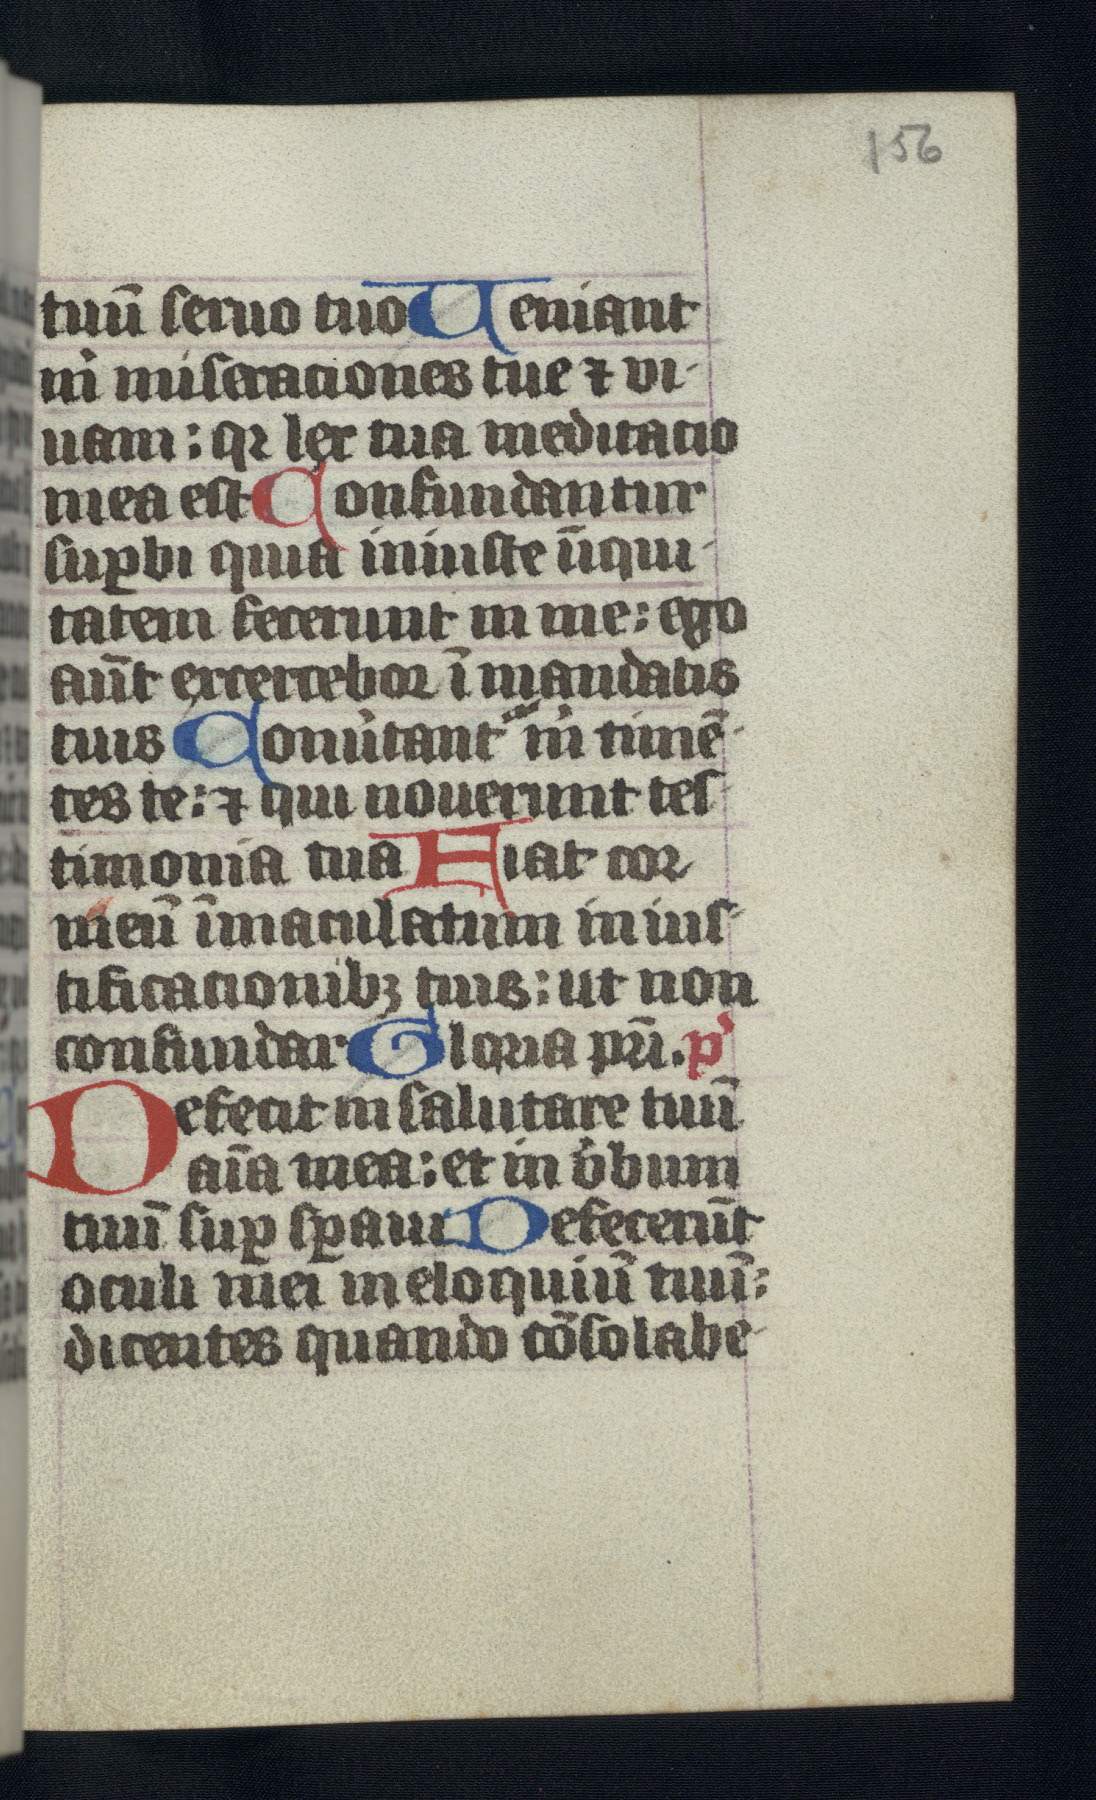 156
tuū seruo tuo Ueniant
m̉ miseraciones tue ⁊ vi-
uam : qꝛ lex tua meditacio
mea est Confundantur
suꝑbi quia iniuste īiqui-
tatem fecerunt in me : ego
aūt exercebor ī mandatis
tuis Conuͥtant᷑ m̉ timē-
tes te : ⁊ qui nouerunt tes-
timonia tua Fiat cor
meū īmaculatum in ius-
tificacionibꝫ tuis : ut non
confundar Gloria pr̄i . p̾
Defecit in salutare tuū
aīa mea : et in v̾bum
tuū suꝑ sꝑaui Defecerūt
oculi mei in eloquiū tuū :
dicentes quando cōsolabe-